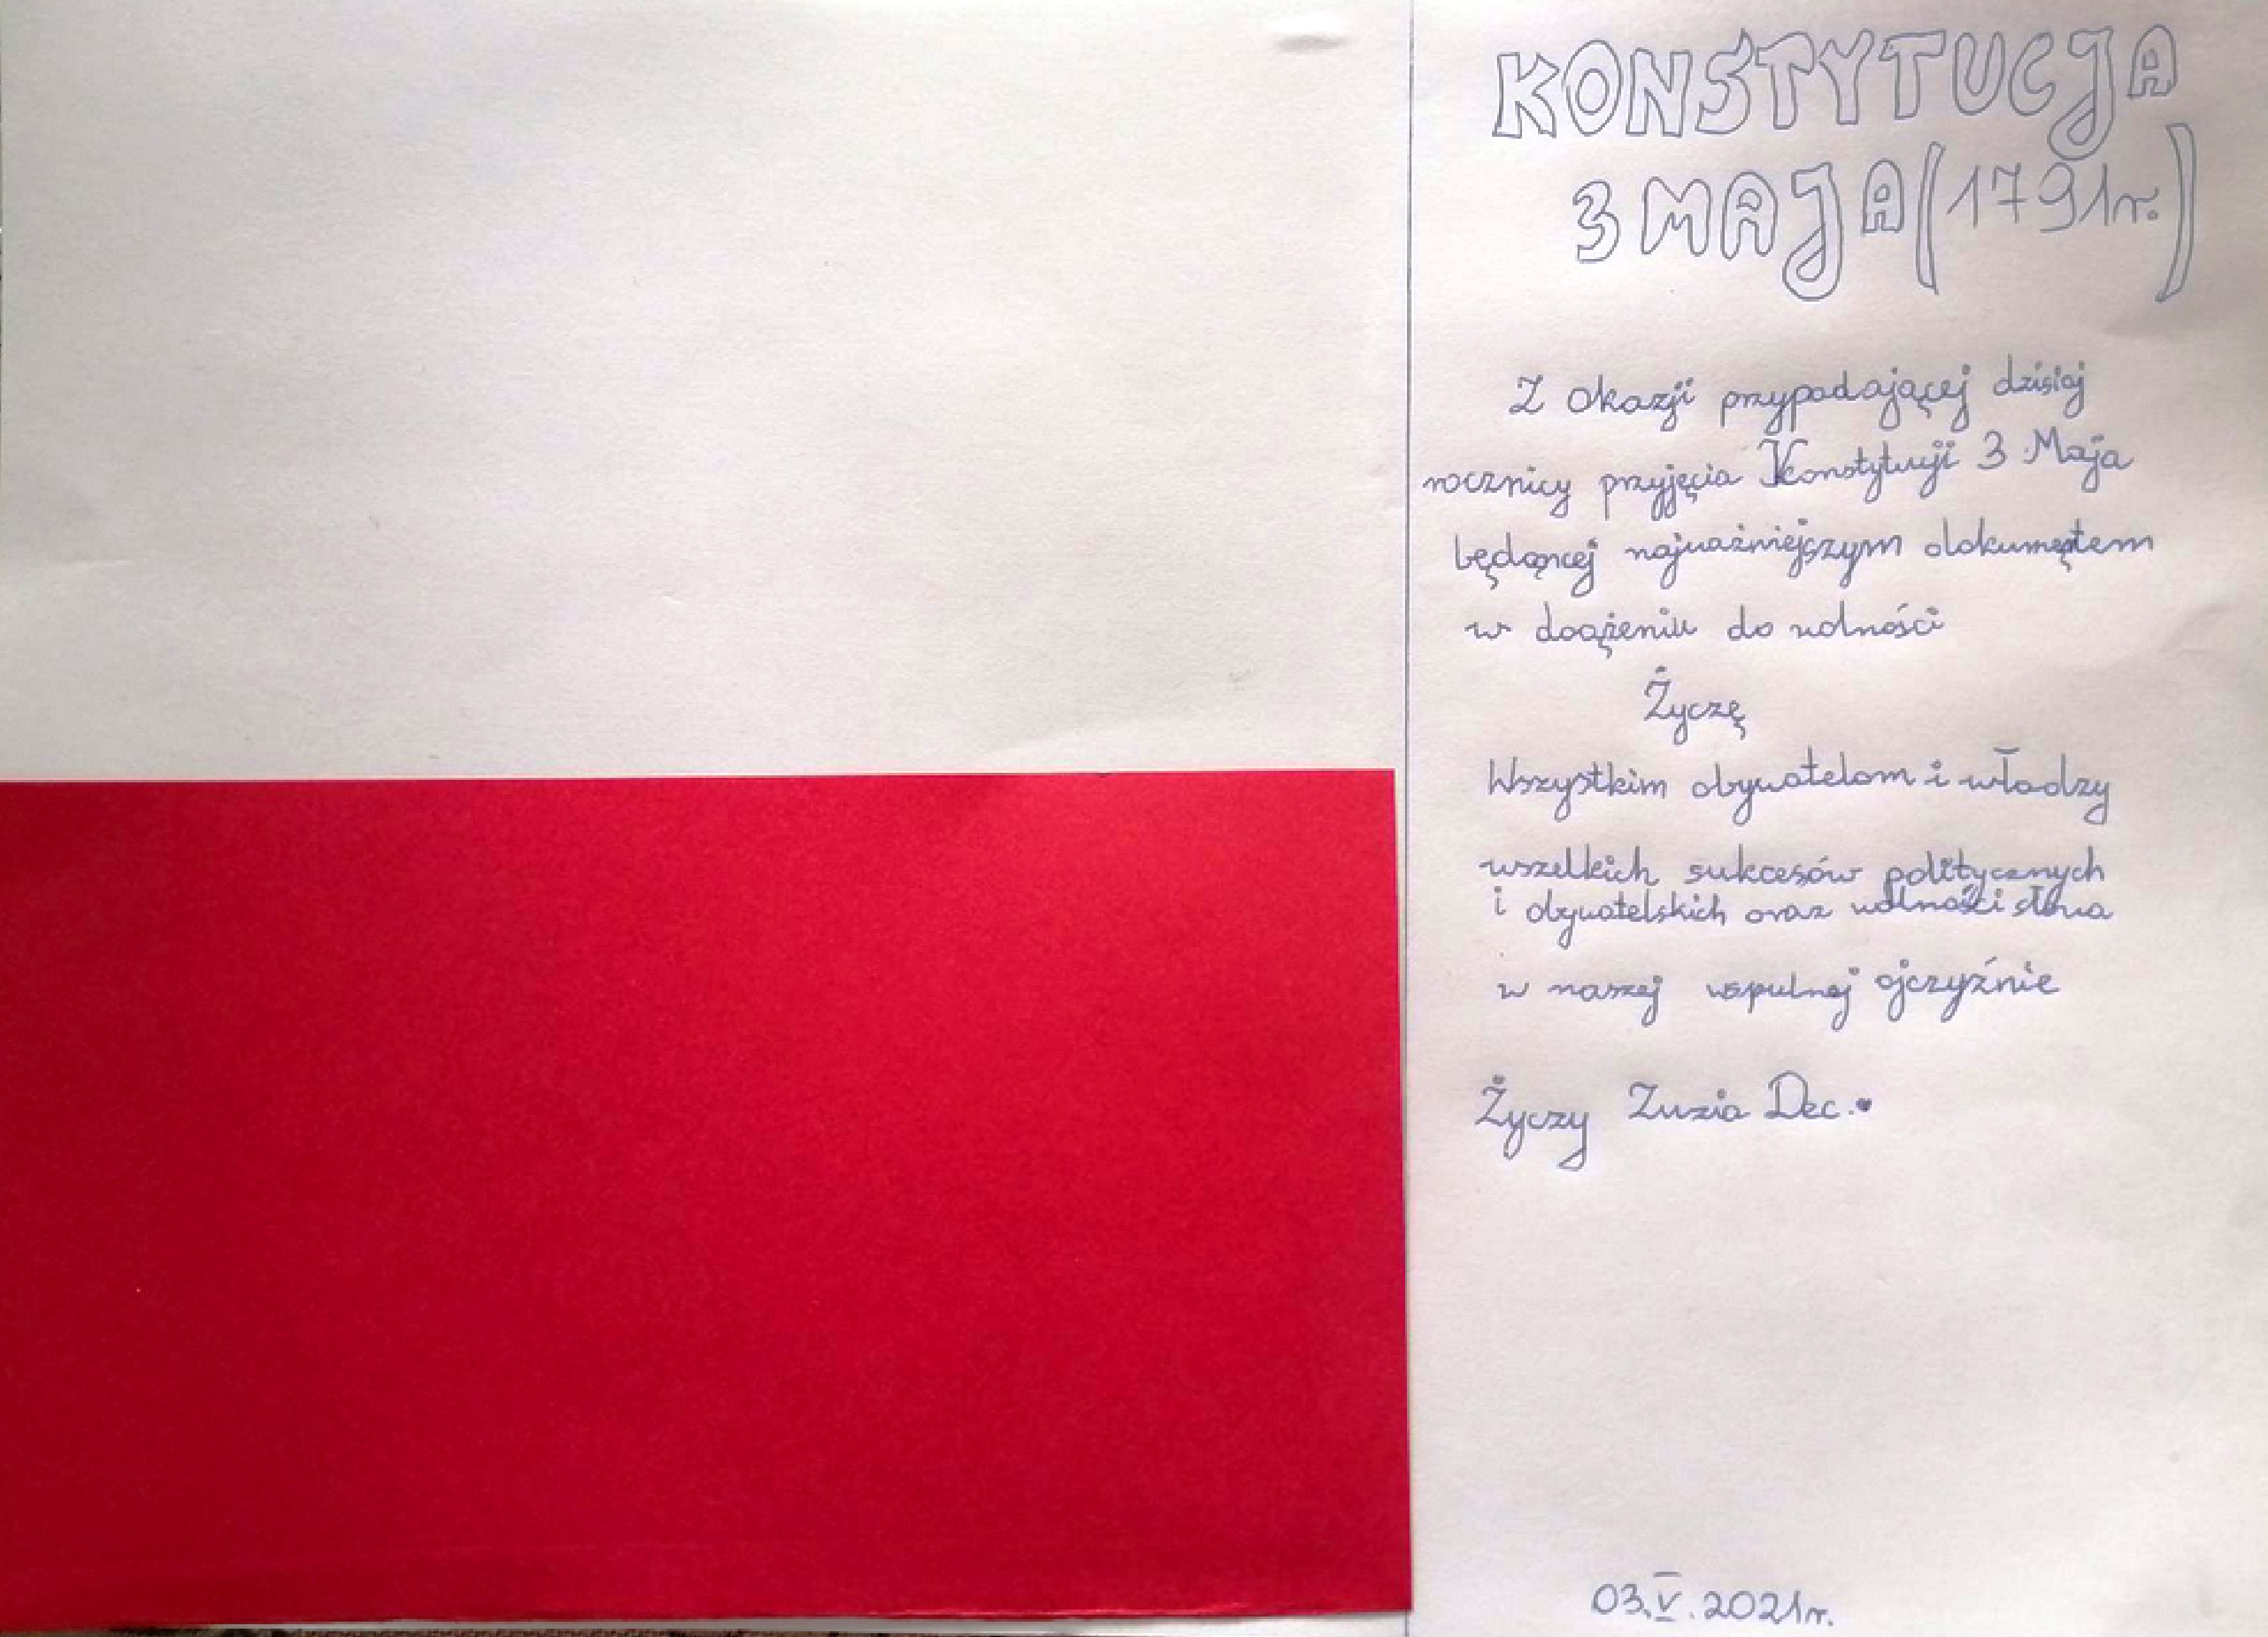 KONSTYTUCJA
3 MAJA (1791r.)
Z okazji przypadającej dzisiaj
rocznicy przyjęcia Konstytucji 3 Maja
będącej najważniejszym dokumętem
w dążeniu do wolności
Życzę
Wszystkim obywatelom i władzy
wszelkich sukcesów politycznych
i obywatelskich oraz wolności słowa
w naszej wspulnej ojczyźnie
Życzy Zuzia Dec.
03.V.2021r.